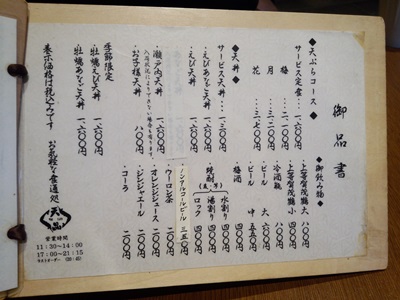 御品書
◆天ぷらコース◆
サービス定食…一、二〇〇円
梅…二、一〇〇円
月…三、二〇〇円
花
◆天丼◆
サービス天丼…一、二〇〇円
・えびあなご天丼 一、六〇〇円
・えび天丼 一、六〇〇円
・瀬戸内天丼 一、六〇〇円
入荷状況によりできない場合も有ります。
・お子様天丼 八〇〇円
季節限定
牡蠣えび天丼 一、六〇〇円
牡蠣あなご天丼 一、六〇〇円
表示価格は税込みです
◆御飲み物◆
・上等賀茂鶴 大 八〇〇円
・上等賀茂鶴 小 四〇〇円
・冷酒
・ビール 大 六〇〇円
・ビール 中 五五〇円
・梅酒 四〇〇円
・焼酎(麦、芋)
水割り 四〇〇円
湯割り 四〇〇円
ロック 四〇〇円
・ノンアルコールビール 三五〇円
・ウーロン茶 二〇〇円
・オレンジジュース 二〇〇円
・ジンジャエール 二〇〇円
・コーラ 二〇〇円
お気軽な食通処
営業時間
11:30~14:00
17:00~21:15